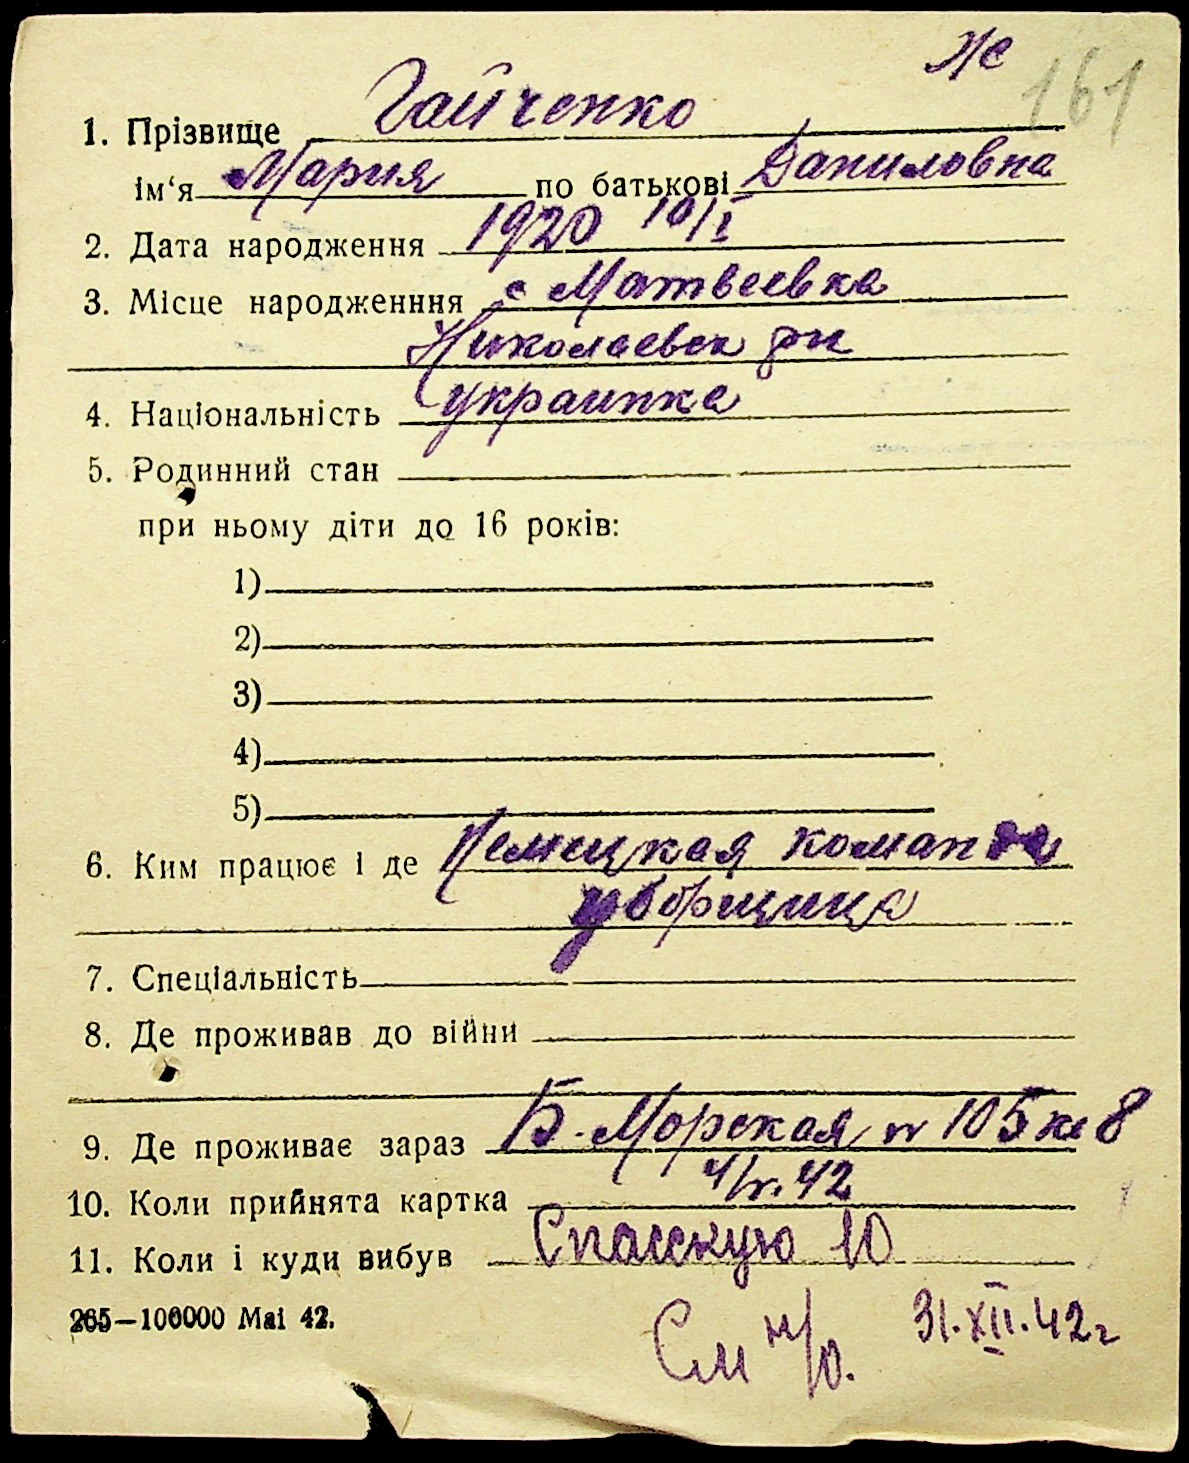 Же 161
1. Прізвище Гайченко
ім‘я Мария по батькові Даниловна
2. Дата народження 1920 10/I
3. Місце народженння с Матвеевка
Николаевск рн
4. Національність украинка
5. Родинний стан
при ньому діти до 16 років:
1)
2)
3)
4)
5)
6. Ким працює і де Немецкая команда
уборщица
7. Спеціальність
8. Де проживав до війни
9. Де проживає зараз Б. Морская N 105 кв 8
10. Коли прийнята картка 4/V. 42
11. Коли і куди вибув Спасскую 10
265—100000 Маі 42.
См н/о. 31.XII.42г